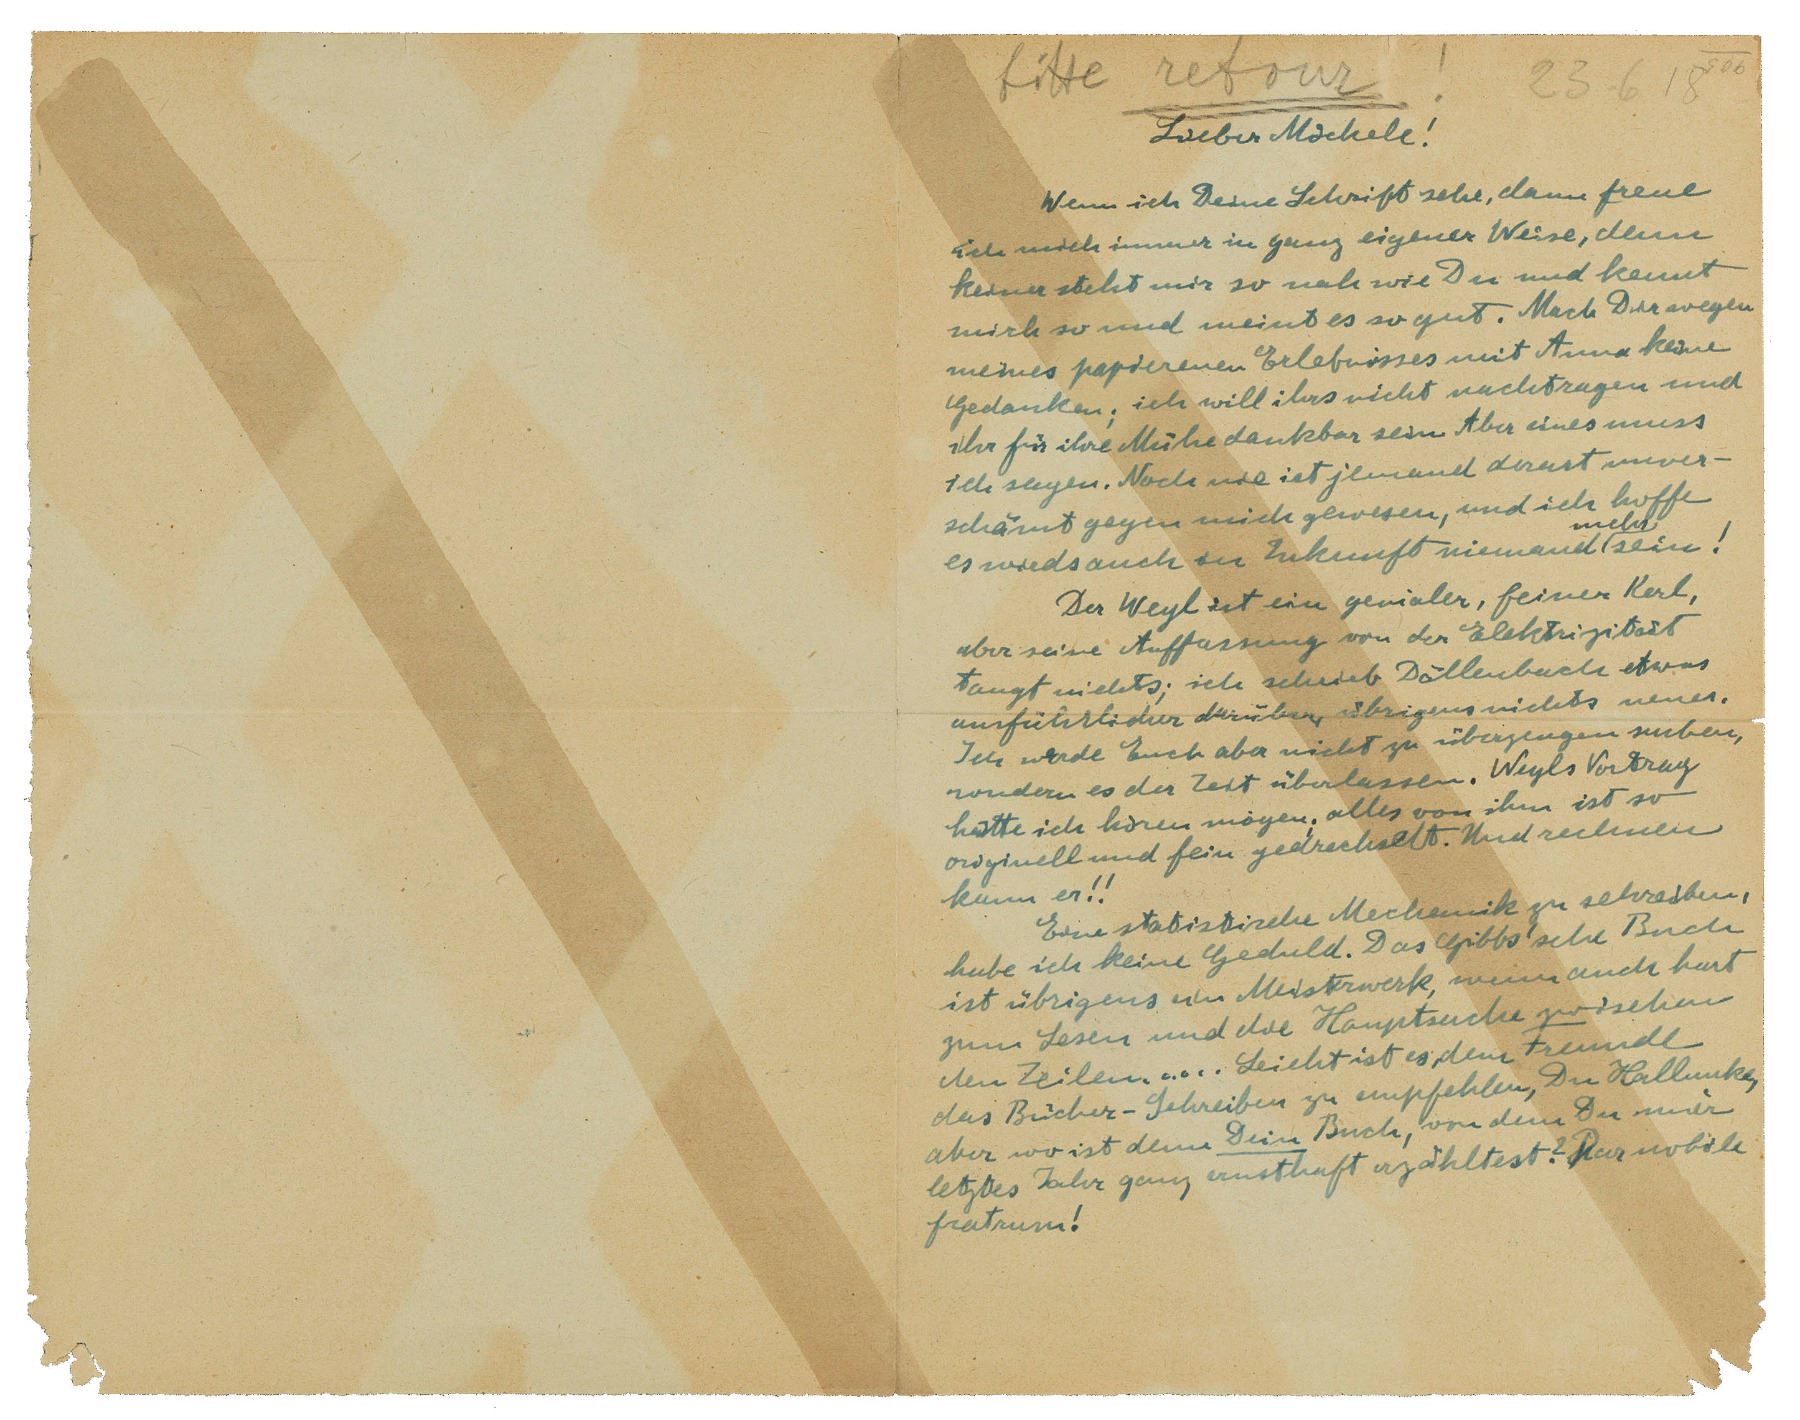 bitte retour!
23.6 18
506
Lieber Michele!
Wenn ich Deine Schrift sehe, dann freue
ich mich immer in ganz eigener Weise, denn
keiner steht mir so nah wie Du und kennt
mich so und meint es so gut. Mach Dir wegen
meines papierenen Erlebnisses mit Anna keine
Gedanken; ich will ihrs nicht nachtragen und
ihr für ihre Mühe dankbar sein Aber eines muss
ich sagen. Noch nie ist jemand derart unver-
schämt gegen mich gewesen, und ich hoffe
es wirds auch in Zukunft niemand mehr sein!
Der Weyl ist ein genialer, feiner Kerl,
aber seine Auffassung von der Elektrizität
taugt nichts; ich schrieb Dällenbach etwas
ausführlicher darüber, übrigens nichts neues.
Ich werde Euch aber nicht zu überzeugen suchen,
sondern es der Zeit überlassen. Weyls Vortrag
hätte ich hören mögen; alles von ihm ist so
originell und fein gedrechselt. Und rechnen
kann er!!
Eine statistische Mechanik zu schreiben,
habe ich keine Geduld. Das Gibbs'sche Buch
ist übrigens ein Meisterwerk, wenn auch hart
zum Lesen und die Hauptsache zwischen
den Zeilen..... Leicht ist es, dem Freunde
das Bücher-Schreiben zu empfehlen, Du Hallunke,
aber wo ist denn Dein Buch, von dem Du mir
letztes Jahr ganz ernsthaft erzähltest? Par nobile
fratrum!